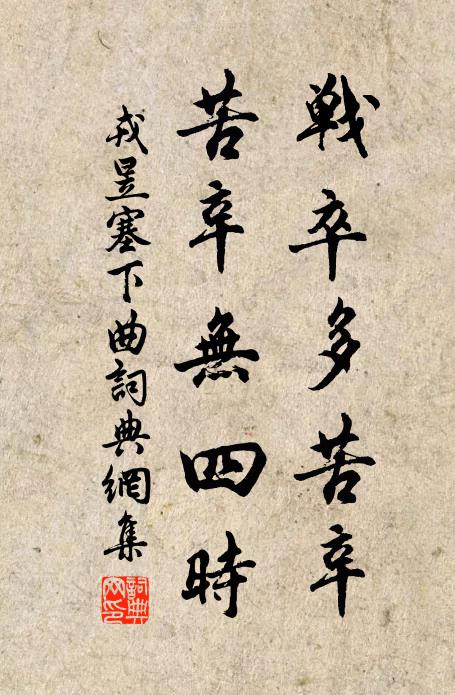 戰卒多苦辛
苦辛無四時
戎昱塞下曲詞典網集
詞典